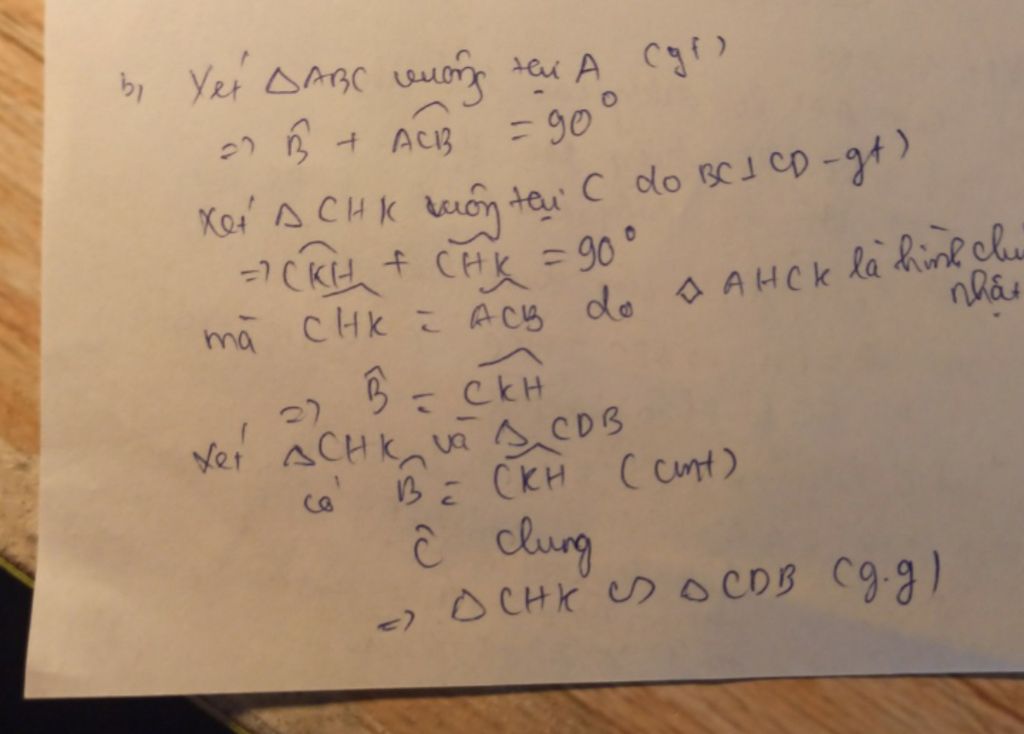 b, Xét △ABC vuông tại A (gt)
=> B̂ + ACB̂ = 90°
Xét △ CHK vuông tại C do BC⊥CD - gt)
=> CKĤ + CHK̂ = 90°
mà CHK̂ = ACB̂ do ◇ AHCK là hình chữ
nhật
=> B̂ = CKĤ
Xét △CHK và △ CDB
có B̂ = CKĤ (cmt)
Ĉ chung
=> △CHK ∽ △CDB (g.g)